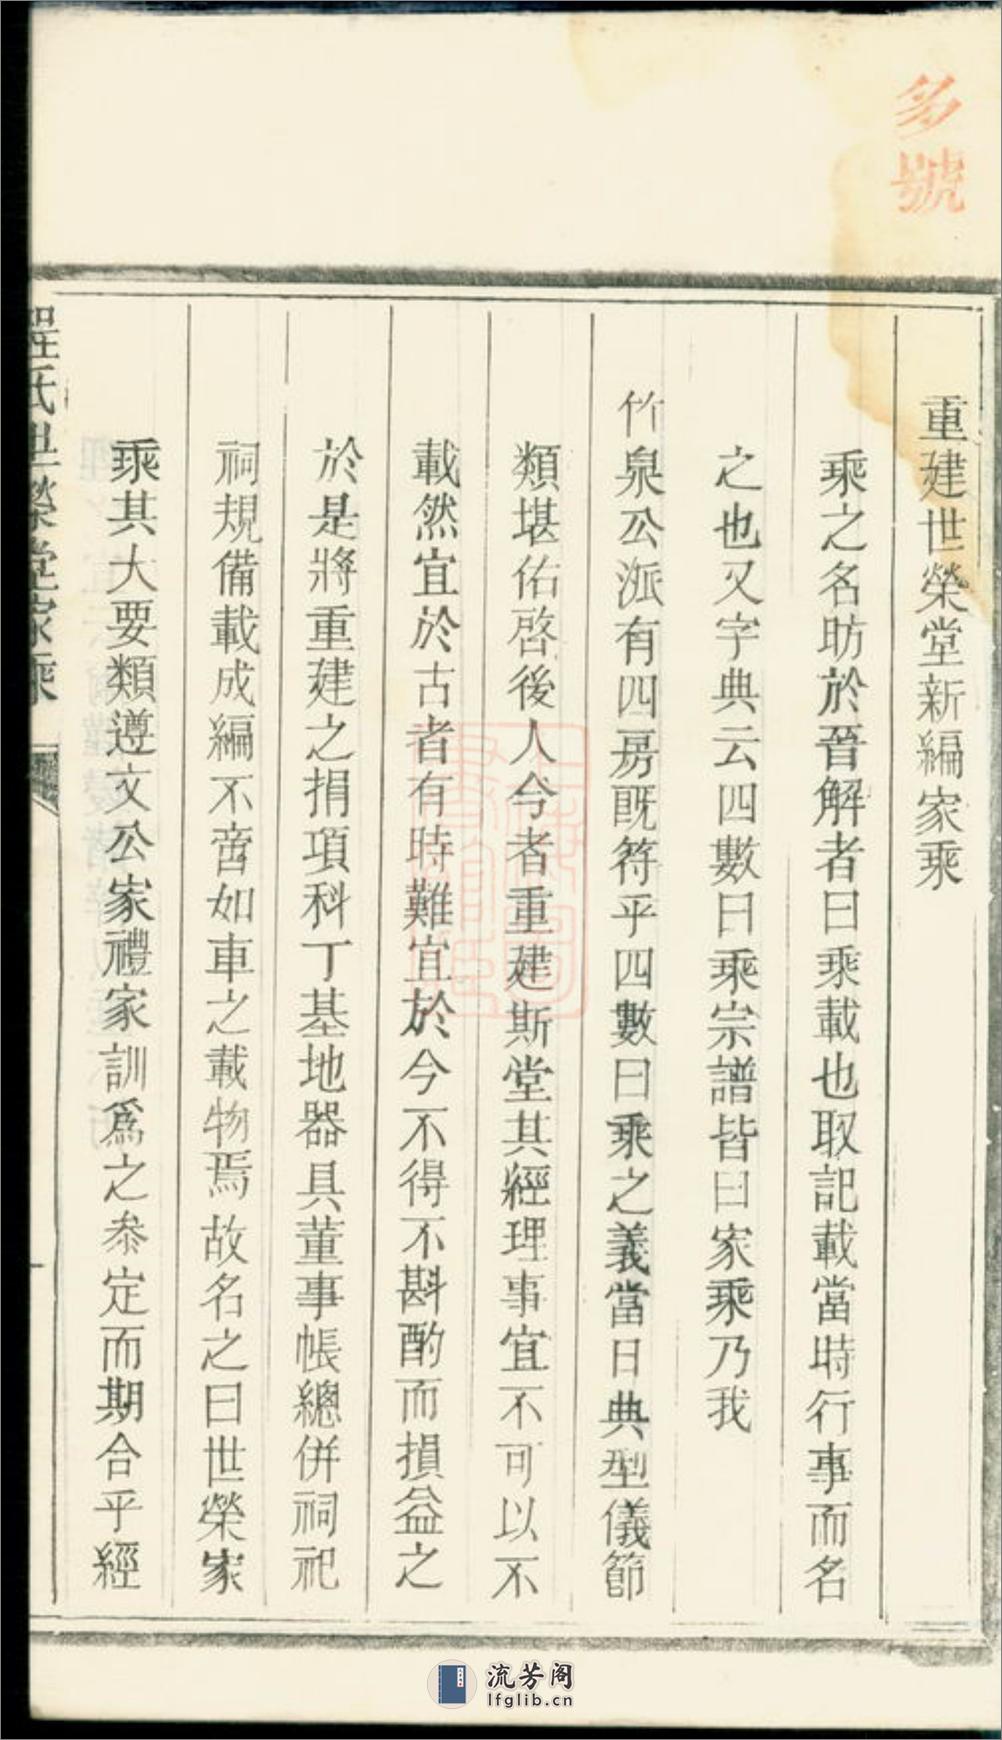 多號
重建世榮堂新編家乘
乘之名昉於晉解者曰乘載也取記載當時行事而名
之也又字典云四數曰乘宗譜皆曰家乘乃我
竹泉公派有四房旣符乎四數曰乘之義當日典型儀節
類堪佑啓後人今者重建斯堂其經理事宜不可以不
載然宜於古者有時難宜於今不得不斟酌而損益之
於是將重建之捐項科丁基地器具董事帳總併祠祀
祠規備載成編不啻如車之載物焉故名之曰世榮家
乘其大要類遵文公家禮家訓爲之叅定而期合乎經
程氏世榮堂家乘
一
流芳阁
lfglib.cn